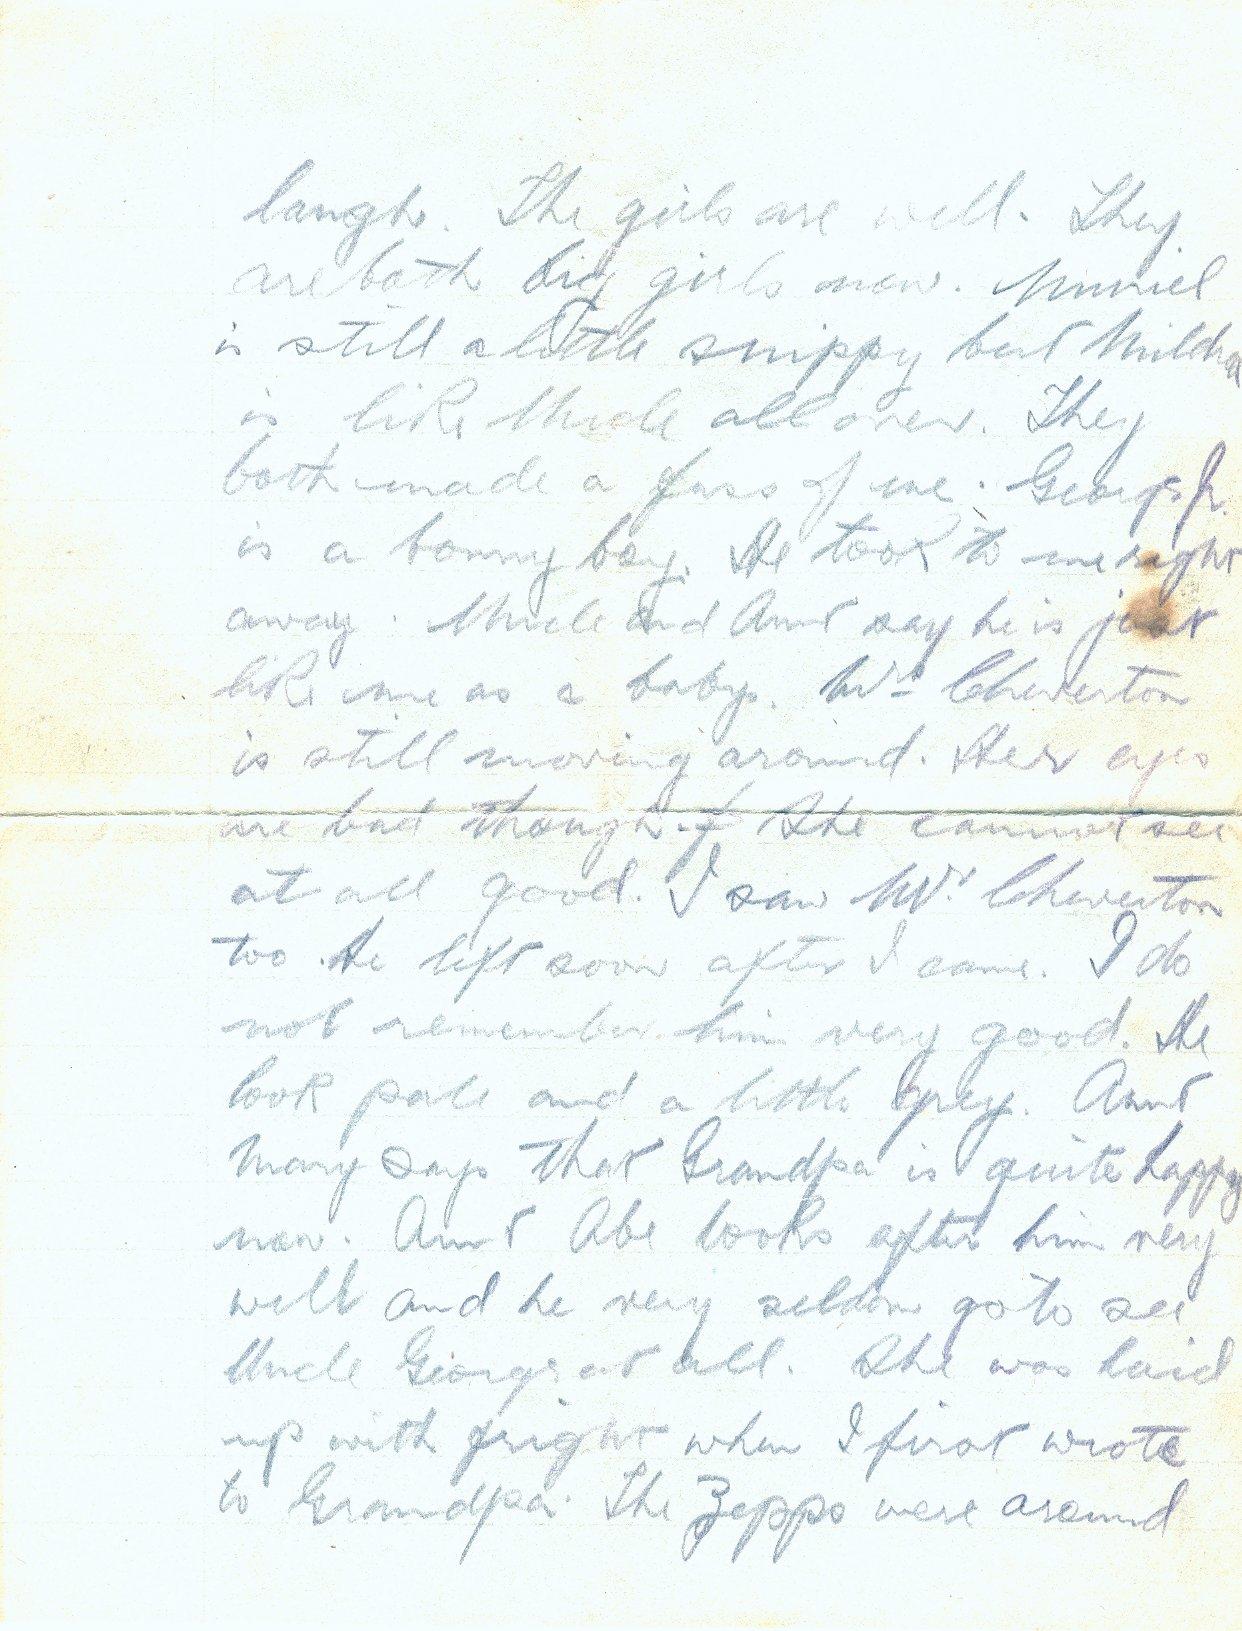 laugh. The girls are well. They
are both big girls now. Muriel
is still a little snippy but Mildred
is like Uncle all over. They
both made a fuss of me. George Jr.
is a bonny boy. He took to me right
away. Uncle and Aunt say he is just
like me as a baby. Mrs Cheverton
is still moving around. Her eyes
are bad though. She cannot see
at all good. I saw Mr. Cheverton
too. He left soon after I came. I do
not remember him very good. He
look pale and a little grey. Aunt
Mary says that Grandpa is quite happy
now. Aunt Abe looks after him very
well and he very seldom go to see
Uncle George at all. She was laid
up with fright when I first wrote
to Grandpa. The Zepps were around